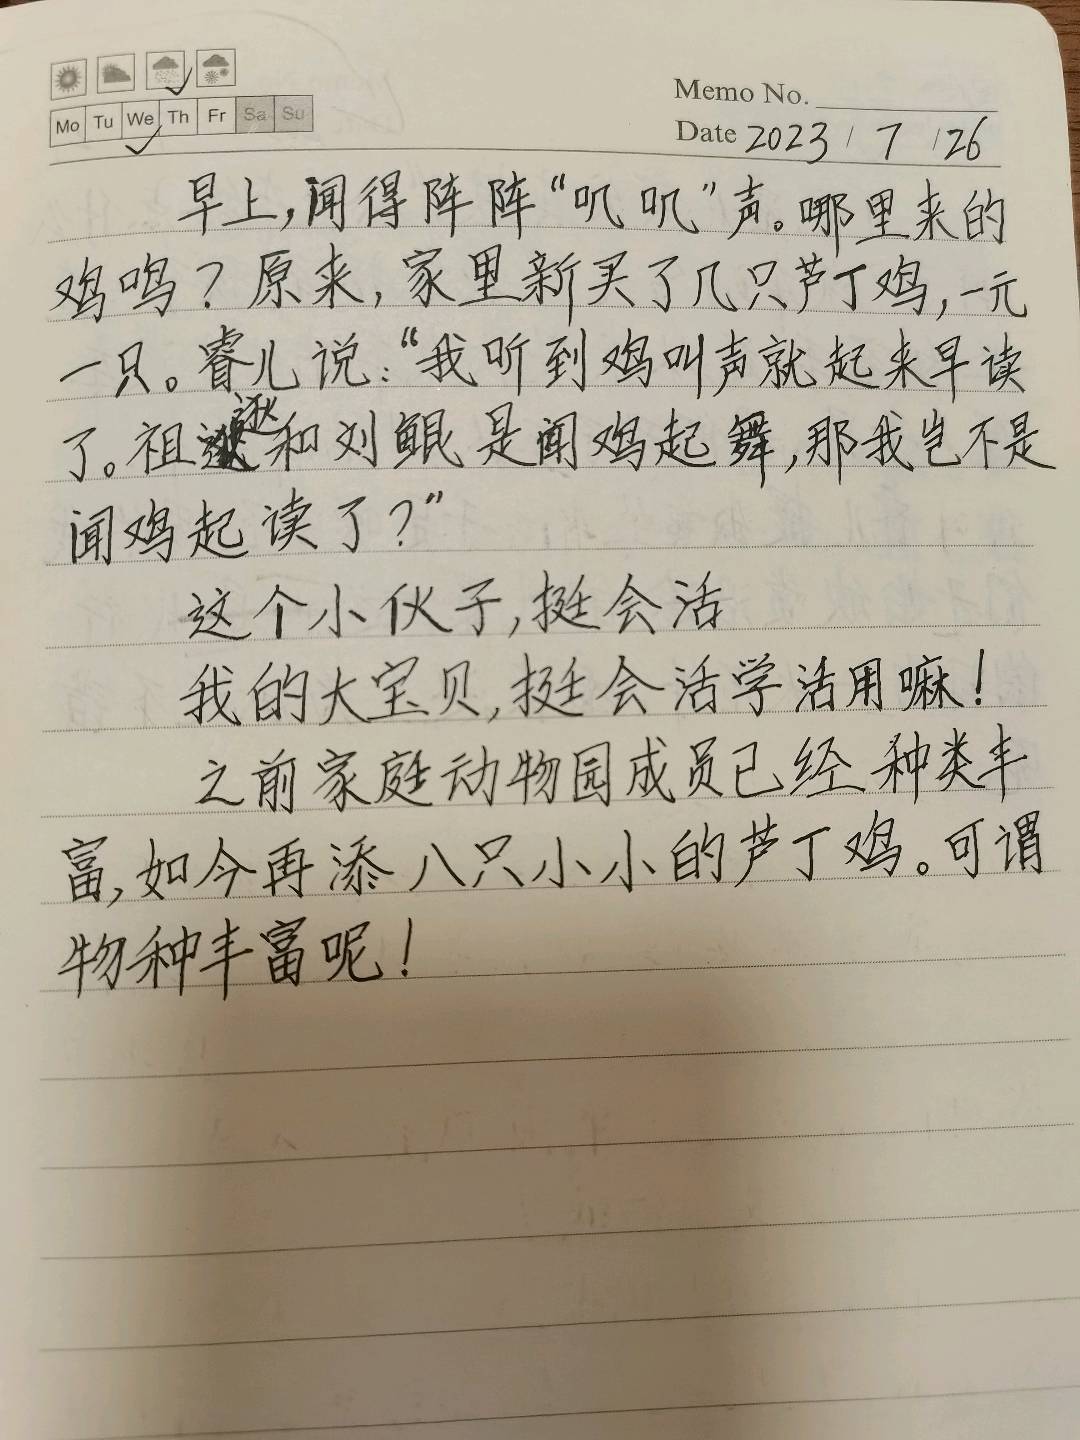 Mo Tu We Th Fr Sa Su
Memo No.
Date 2023 / 7 / 26
早上,闻得阵阵“叽叽”声。哪里来的
鸡鸣?原来,家里新买了几只芦丁鸡,一元
一只。睿儿说:“我听到鸡叫声就起来早读
了。祖逖和刘鲲是闻鸡起舞,那我岂不是
闻鸡起读了?”
这个小伙子,挺会活
我的大宝贝,挺会活学活用嘛!
之前家庭动物园成员已经种类丰
富,如今再添八只小小的芦丁鸡。可谓
物种丰富呢!